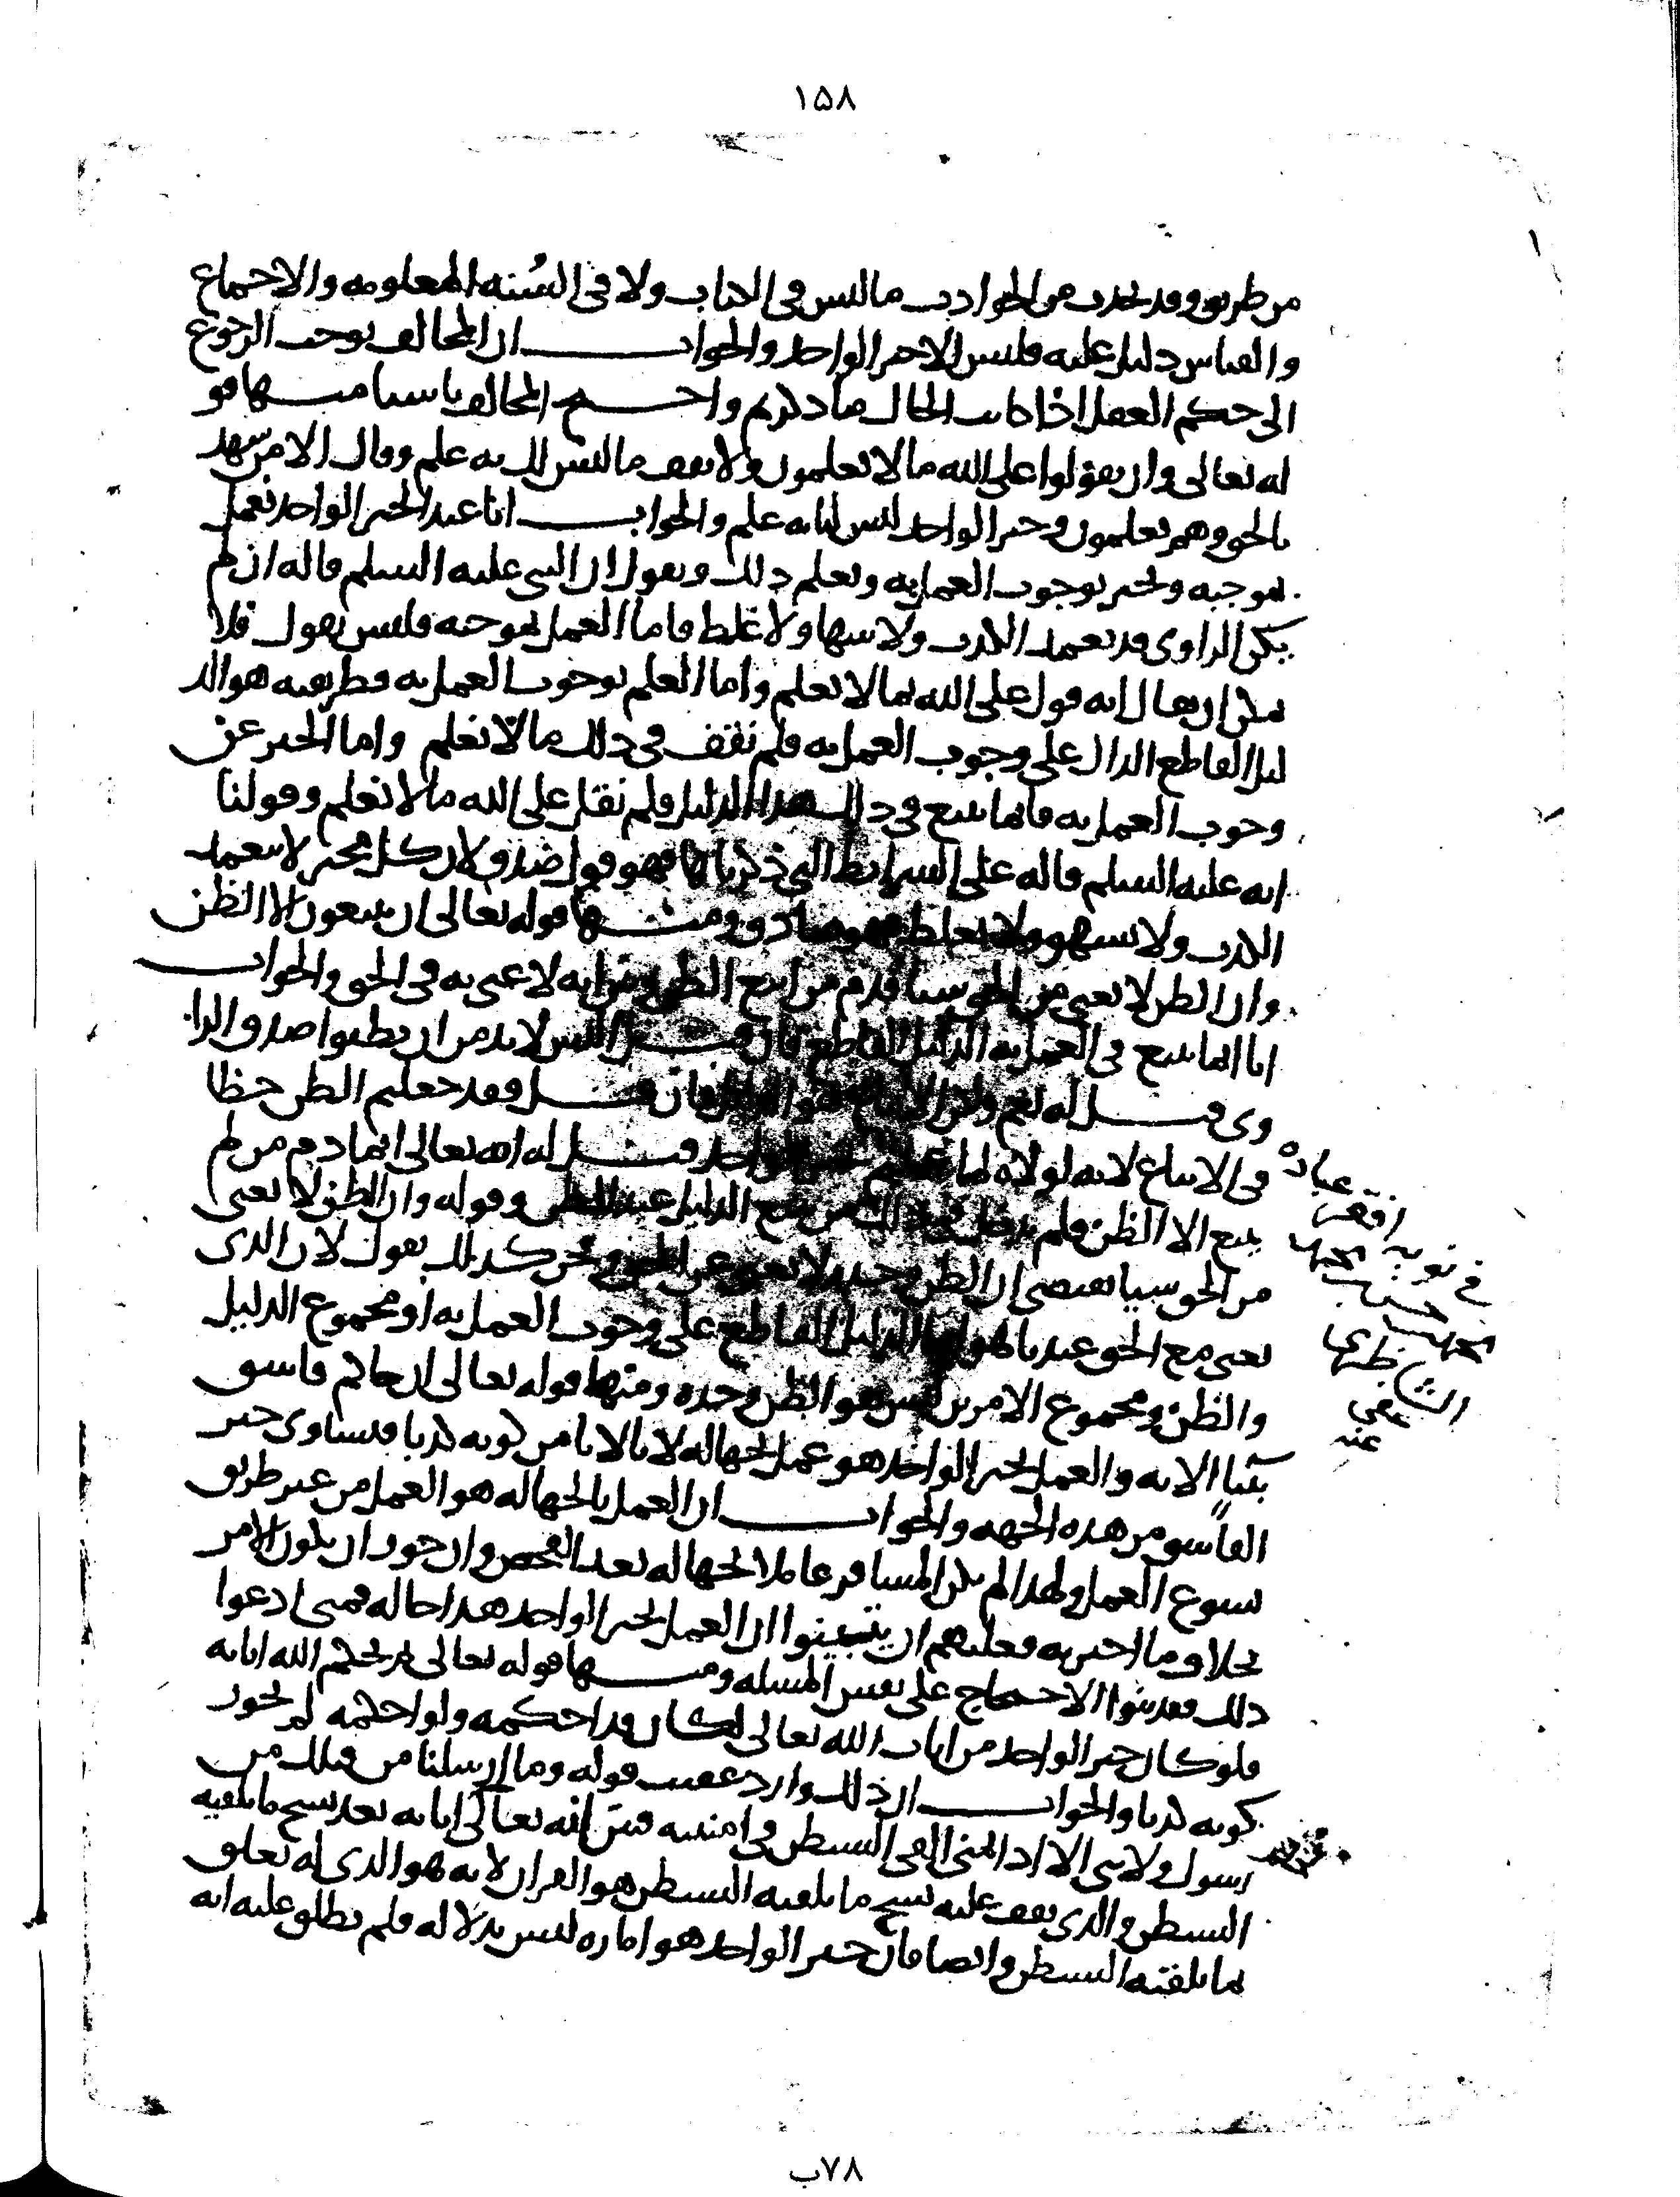 ١٥٨
من طريق وقد يحدث من الحوادث ما ليس في الكتاب ولا في السُنه المعلومه والاجماع
والقياس دليل عليه فليس الا خبر الواحد والجواب ان المخالف يوجب الرجوع
الى حكم العقل اذا كانت الحال ما ذكرتم واحتج المخالف باشيا منها قو
له تعالى وان تقولوا على الله ما لا تعلمون ولا تقف ما ليس لك به علم وقال الا من شهد
بالحق وهم يعلمون وخبر الواحد ليس لنا به علم والجواب انا عند الخبر الواحد نعمل
بموجبه ونخبر بوجوب العمل به ونعلم ذلك ونقول ان النبي عليه السلم قاله ان لم
يكن الراوي قد تعمد الكذب ولا سها ولا غلط فاما العمل بموجبه فليس بقول فلا
يمكن ان يقال انه قول على الله بما لا نعلم واما العلم بوجوب العمل به فطريقه هو الد
ليل القاطع الدال على وجوب العمل به فلم نقف في ذلك ما لا نعلم واما الخبر عن
وجوب العمل به فانما نتبع في ذلك هذا الدليل فلم نقل على الله ما لا نعلم وقولنا
انه عليه السلم قاله على الشرايط التي ذكرناها فهو قول صدق لان كل مخبر لا يتعمد
الكذب ولا يسهو ولا يغلط فهو صادق ومنها قوله تعالى ان يتبعون الا الظن
وان الظن لا يغني من الحق شيئا فذم من اتبع الظن وبين انه لا غنى به في الحق والجواب
انا انما نتبع في العمل به الدليل القاطع فان قيل اليس لا بد من ان يظنوا صدق الرا
وي قيل له نعم ولكن الاتباع هو الدليل فان قيل فقد جعلتم الظن حظا
في الاتباع لانه لولاه لما عملتم بخبر الواحد قيل له انه تعالى انما ذم من لم
يتبع الا الظن فلم يدخل في ذلك من يتبع الدليل عند الظن وقوله وان الظن لا يغني
من الحق شيئا يقتضي ان الظن وحده لا يغني عن الحق ونحن كذلك نقول لان الذي
يغني مع الحق عندنا هو اما الدليل القاطع على وجوب العمل به او مجموع الدليل
والظن ومجموع الامرين ليس هو الظن وحده ومنها قوله تعالى ان جاكم فاسق
بنبا الايه والعمل بخبر الواحد هو عمل بجهاله لانا لا نامن كونه كذبا فساوى خبر
الفاسق من هذه الجهه والجواب ان العمل بالجهاله هو العمل من غير طريق
يسوغ العمل ولهذا لم يكن المسافر عاملا بجهاله بعد الفحص وان جوز ان يكون الامر
بخلاف ما اخبر به فعليهم ان يتبينوا ان العمل بخبر الواحد هذا حاله فمتى ادعوا
ذلك فقد بنوا الاحتجاج على نفس المسله ومنها قوله تعالى ثم يحكم الله اياته
فلو كان خبر الواحد من ايات الله تعالى لكان قد احكمه ولو احكمه لم يجز
كونه كذبا والجواب ان ذلك وارد عقيب قوله وما ارسلنا من قبلك من
رسول ولا نبي الا اذا تمنى القى الشيطن في امنيته فبين انه تعالى اياته بعد نسخ ما يلقيه
الشيطن والذي يقف عليه نسخ ما يلقيه الشيطن هو القران لانه هو الذي له تعلق
بما يلقيه الشيطن وايضا فان خبر الواحد هو اماره ليس بدلاله فلم يطلق عليه انه
عباده
افقر
في نوبة
الشافعي
عنه
٧٨ب